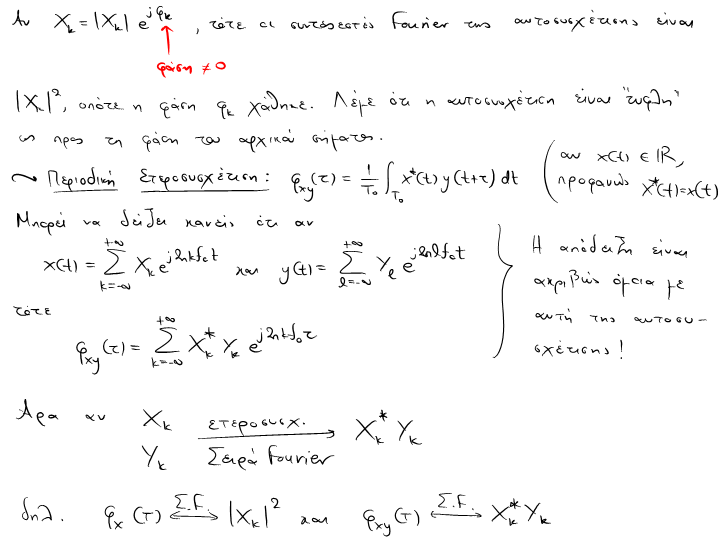 Αν X_k = |X_k| e^{jφ_k}, τότε οι συντελεστές Fourier της αυτοσυσχέτισης είναι
φάση ≠ 0
|X_k|², οπότε η φάση φ_k χάθηκε. Λέμε ότι η αυτοσυσχέτιση είναι "τυφλή"
ως προς τη φάση του αρχικού σήματος.
~ Περιοδική Ετεροσυσχέτιση: φ_{xy}(τ) = 1/T₀ ∫_{T₀} x*(t) y(t+τ) dt
(αν x(t) ∈ ℝ,
προφανώς x*(t)=x(t)
Μπορεί να δείξει κανείς ότι αν
x(t) = Σ_{k=-∞}^{+∞} X_k e^{j2πkf₀t} και y(t) = Σ_{l=-∞}^{+∞} Y_l e^{j2πlf₀t}
τότε
φ_{xy}(τ) = Σ_{k=-∞}^{+∞} X_k* Y_k e^{j2πkf₀τ}
} Η απόδειξη είναι
ακριβώς όμοια με
αυτή της αυτοσυ-
σχέτισης!
Άρα αν X_k ετεροσυσχ. → X_k* Y_k
Y_k Σειρά Fourier
δηλ. φ_x(τ) ⟷^{Σ.F.} |X_k|² και φ_{xy}(τ) ⟷^{Σ.F.} X_k* Y_k